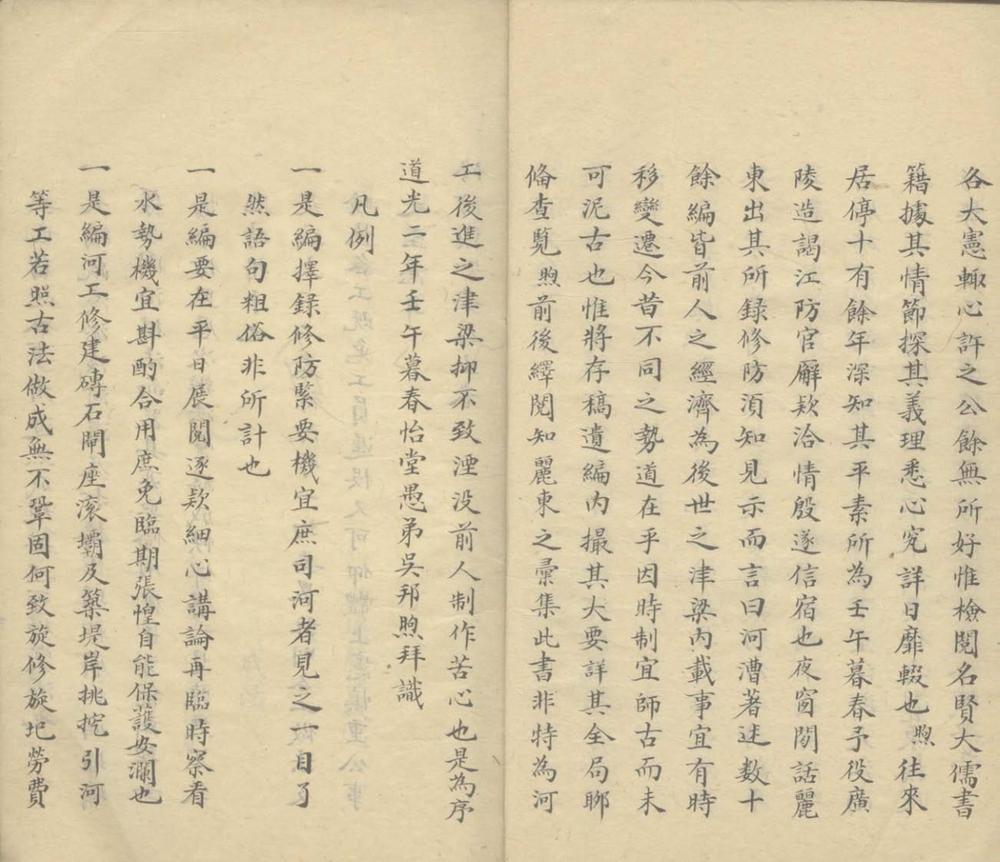 各大憲輙心許之公餘無所好惟檢閱名賢大儒書
籍據其情節探其義理悉心究詳日靡輟也煦往來
居停十有餘年深知其平素所為壬午暮春予役廣
陵造謁江防官廨欵洽情殷遂信宿也夜窗閒話麗
東出其所録修防湏知見示而言曰河漕著述数十
餘編皆前人之經濟為後世之津梁内載事宜有時
移變遷今昔不同之勢道在乎因時制宜師古而未
可泥古也惟將存稿遺編内撮其大要詳其全局聊
俻查覧煦前後繹閱知麗東之彙集此書非特為河
工後進之津梁抑不致湮没前人制作苦心也是為序
道光二年壬午暮春怡堂愚弟吳邦煦拜識
凡例
一是編擇録修防緊要機宜庶司河者見之一目了
然語句粗俗非所計也
一是編要在平日展閱逐欵細心講論再臨時察看
水勢機宜斟酌合用庶免臨期張惶自能保護安瀾也
一是編河工修建磚石閘座滚壩及築堤岸挑挖引河
等工若照古法做成無不鞏固何致旋修旋圯勞費